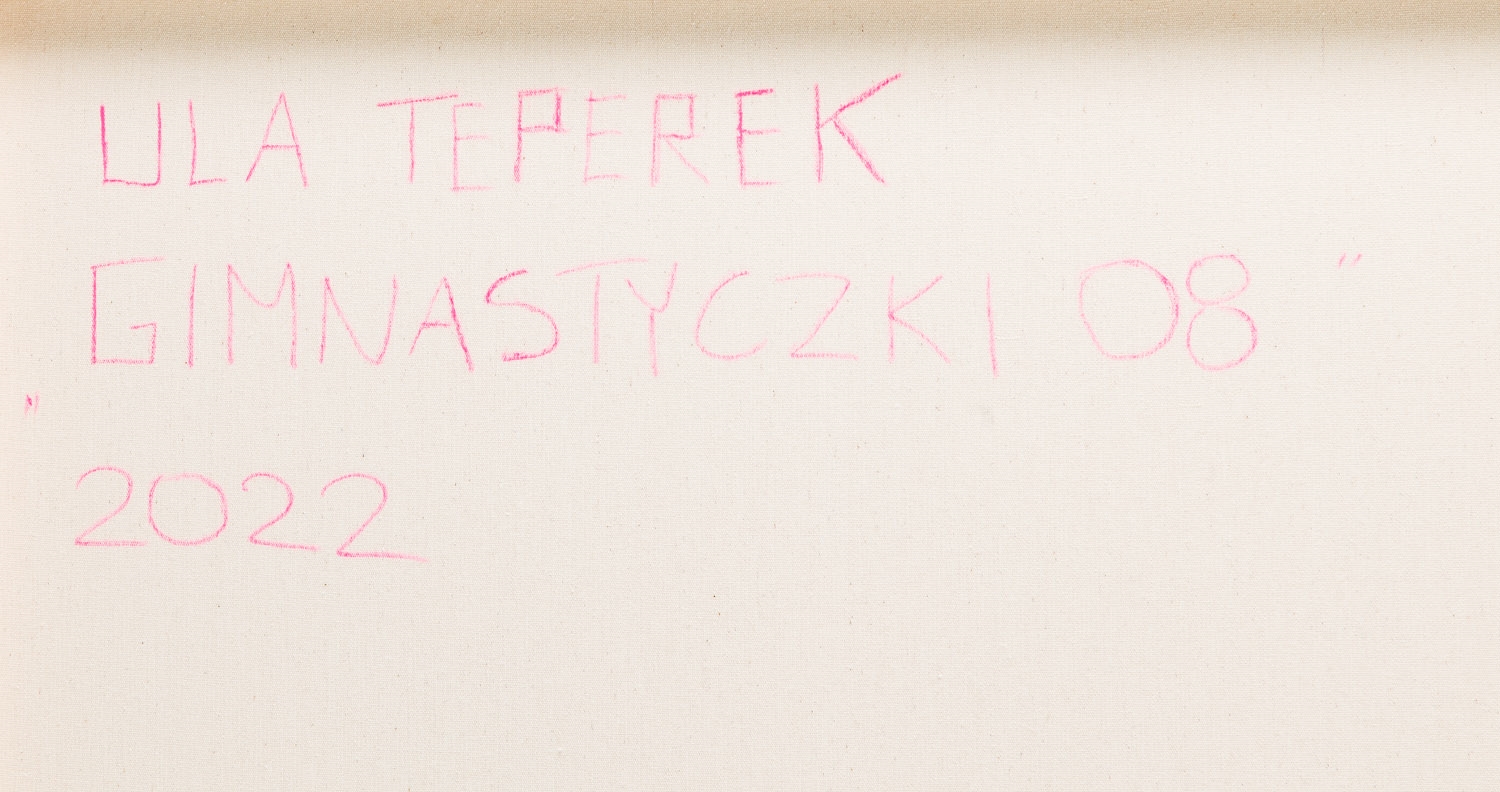 ULA TEPEREK
„GIMNASTYCZKI 08”
2022